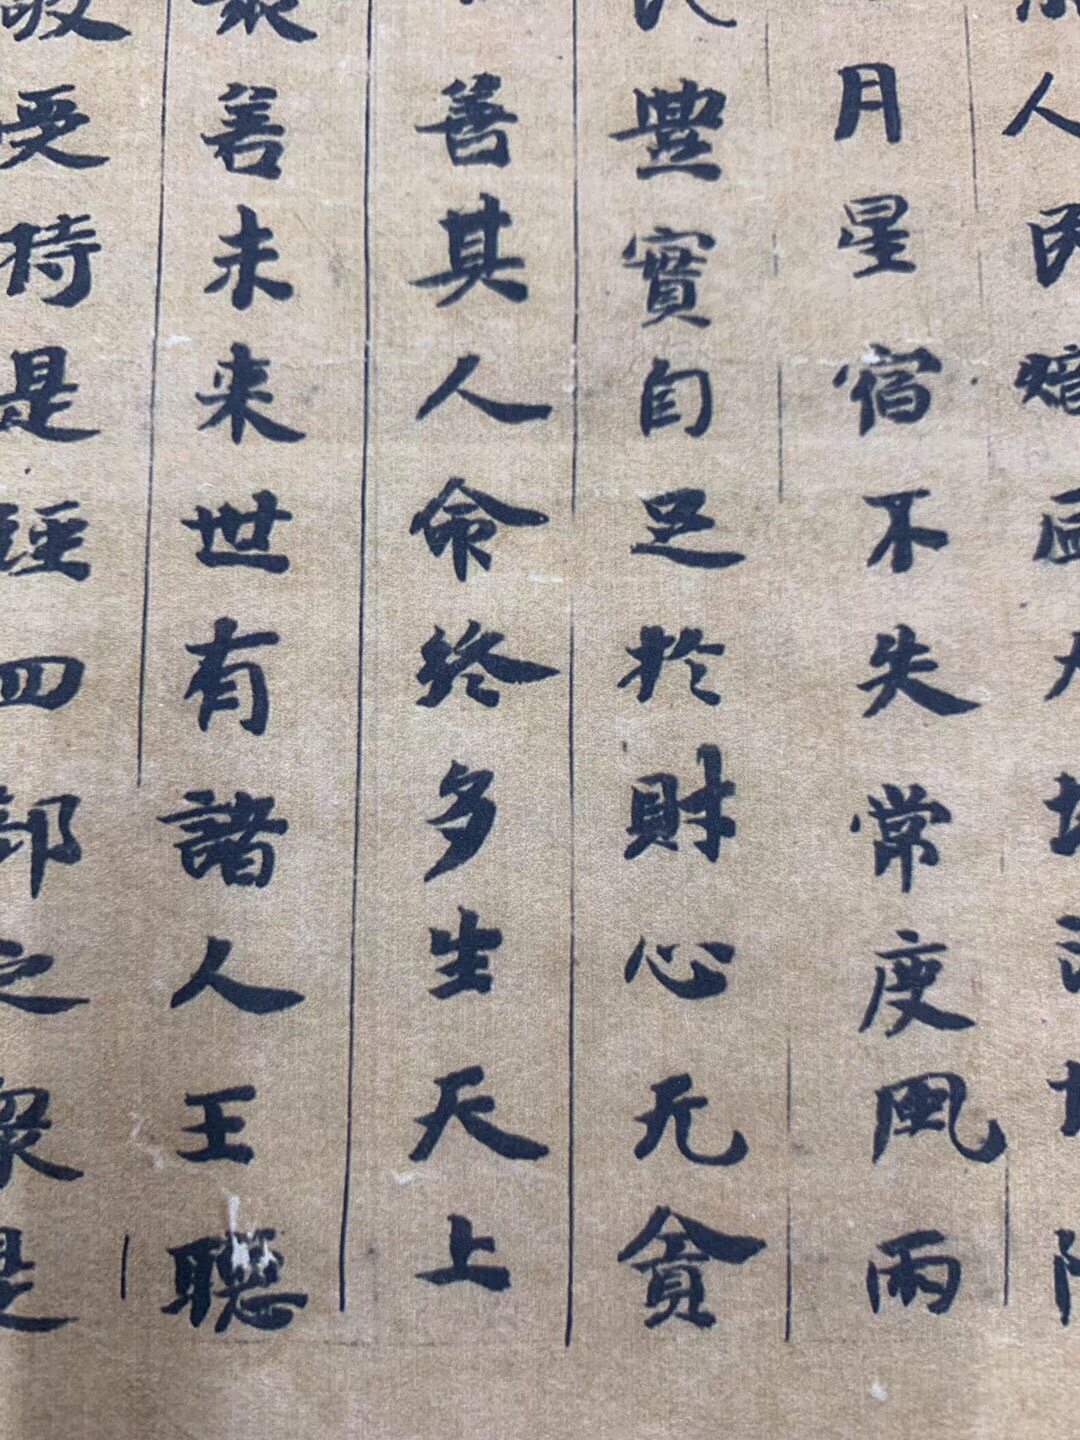 人民
月星宿不失常度風雨
豐實自足於財心无貪
善其人命終多生天上
善未来世有諸人王聽
受持是經四部之衆是